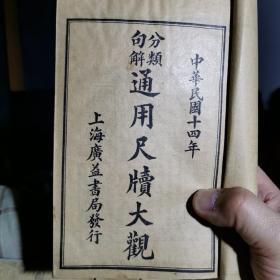 中華民國十四年
分類
句解
通用尺牘大觀
上海廣益書局發行